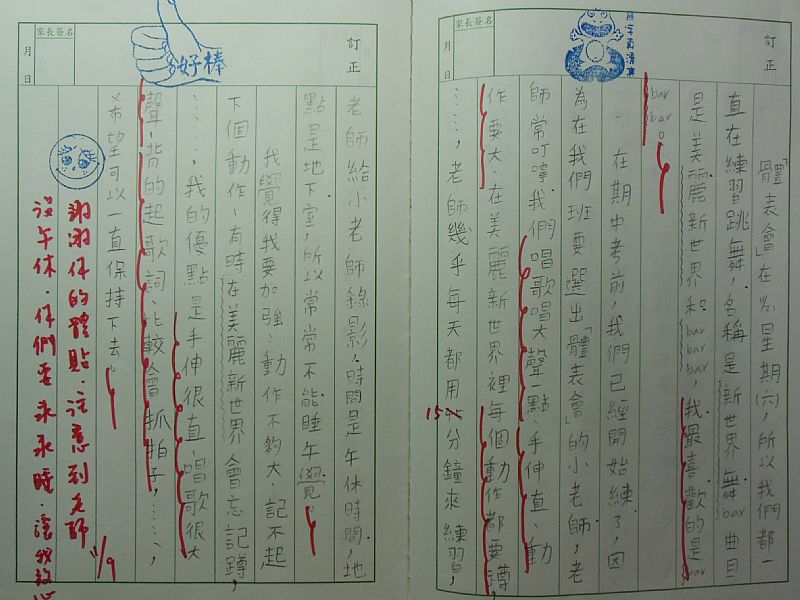 訂正
家長簽名
月 日
「體表會」在 星期(六),所以我們都一
直在練習跳舞,名稱是新世界舞bar曲目
是美麗新世界和bar bar bar,我最喜歡的是bar
bar bar。
在期中考前,我們已經開始練了,因
為在我們班要選出「體表會」的小老師,老
師常叮嚀我們唱歌唱大聲一點、手伸直、動
作要大、在美麗新世界裡每個動作都要蹲,
……,老師幾乎每天都用15分鐘來練習,
訂正
家長簽名
月 日
好棒
老師給小老師錄影,時間是午休時間,地
點是地下室,所以常常不能睡午覺。
我覺得我要加強:動作不夠大、記不起
下個動作、有時在美麗新世界會忘記蹲,
……,我的優點是手伸很直、唱歌很大
聲、背的起歌詞、比較會抓拍子,……,
希望可以一直保持下去。
謝謝你的體貼,注意到老師
沒午休,你們要永永睡,讓我放心
11/9